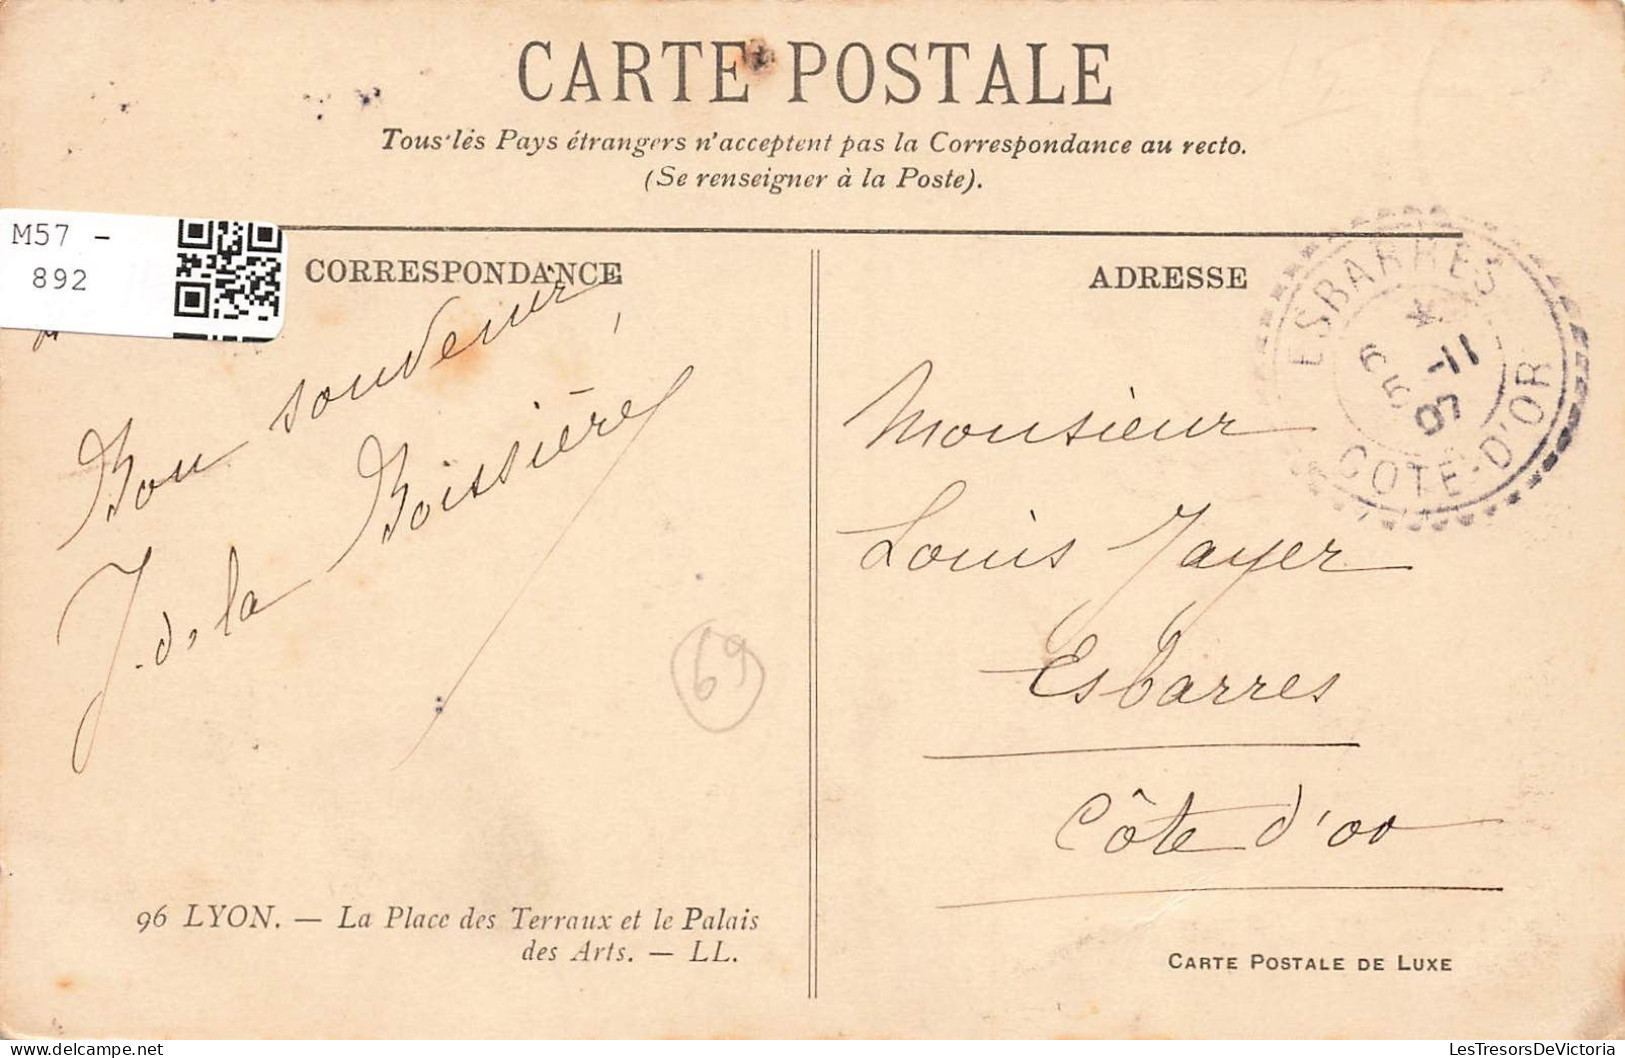 CARTE POSTALE
Tous les Pays étrangers n'acceptent pas la Correspondance au recto.
(Se renseigner à la Poste).
M57 -
892
CORRESPONDANCE
ADRESSE
ESBARRES
11
07
COTE-D'OR
Bon souvenir
J. d. la Boissière
69
Monsieur
Louis Jayer
Esbarres
Côte d'or
96 LYON. — La Place des Terraux et le Palais
des Arts. — LL.
CARTE POSTALE DE LUXE
LesTresorsDeVictoria